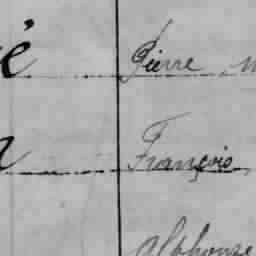 é Pierre
François
Alphonse